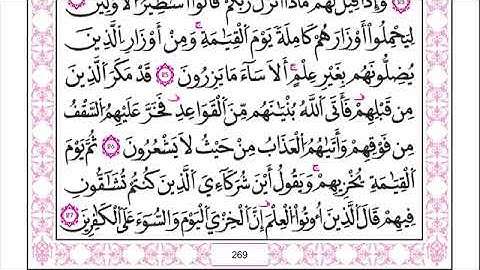 وَإِذَا قِيلَ لَهُم مَّاذَا أَنزَلَ رَبُّكُمْ قَالُوا أَسَاطِيرُ الْأَوَّلِينَ
لِيَحْمِلُوا أَوْزَارَهُمْ كَامِلَةً يَوْمَ الْقِيَامَةِ وَمِنْ أَوْزَارِ الَّذِينَ
يُضِلُّونَهُم بِغَيْرِ عِلْمٍ أَلَا سَاءَ مَا يَزِرُونَ ٢٥ قَدْ مَكَرَ الَّذِينَ
مِن قَبْلِهِمْ فَأَتَى اللَّهُ بُنْيَانَهُم مِّنَ الْقَوَاعِدِ فَخَرَّ عَلَيْهِمُ السَّقْفُ
مِن فَوْقِهِمْ وَأَتَاهُمُ الْعَذَابُ مِنْ حَيْثُ لَا يَشْعُرُونَ ٢٦ ثُمَّ يَوْمَ
الْقِيَامَةِ يُخْزِيهِمْ وَيَقُولُ أَيْنَ شُرَكَاءِيَ الَّذِينَ كُنتُمْ تُشَاقُّونَ
فِيهِمْ قَالَ الَّذِينَ أُوتُوا الْعِلْمَ إِنَّ الْخِزْيَ الْيَوْمَ وَالسُّوءَ عَلَى الْكَافِرِينَ ٢٧
269